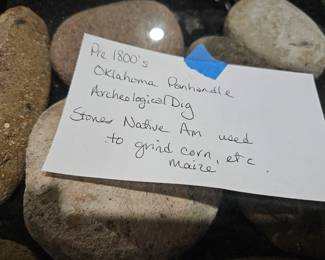 Pre 1800's
Oklahoma Panhandle
Archeological Dig
Stones Native Am used
to grind corn, etc.
maize